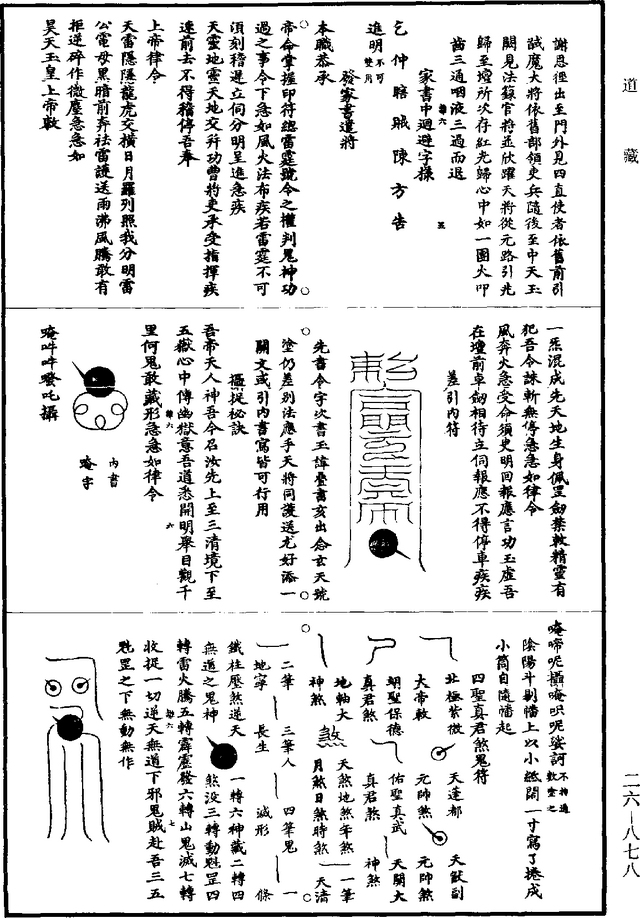 道藏
謝恩徑出至門外見四直使者依舊前引
試魔大將依舊部領吏兵隨後至中天玉
闕見法籙官將並欣躍天將從元路引兆
歸至壇所次存紅光歸心中如一團火叩
齒三通咽液三過而退
家書中迴避字樣
乞仲賠賊陳方告
進明不可雙月
發家書遣將
本職恭承
帝命掌握印符總雷霆號令之權判鬼神功
過之事令下急如風火法布疾若雷霆不可
須刻稽遲立伺分明呈進急疾
天靈地靈天地交并功曹將吏承受指揮疾
速前去不得稽停吾奉
上帝律令
天雷隱隱龍虎交橫日月羅列照我分明雷
公電母黑暗前奔祛雷護送雨沸風騰敢有
拒逆碎作微塵急急如
昊天玉皇上帝敕
一炁混成先天地生身佩罡劒葉敕精靈有
犯吾令誅斬無停急急如律令
風奔火急受命須史明回報應言功玉虛吾
在壇前卓劒相待立伺報應不得停車疾疾
差引內符
先書令字次書玉諱疊書亥出念玄天號
塗仍差別法應手天將同護送尤好添一
關文或引內書寫皆可行用
攝捉秘訣
吾帝天人神吾今召汝先上至三清境下至
五嶽心中傳幽獄意吾道悉開明舉目觀千
里何鬼敢藏形急急如律令
唵吽吽發吒攝
內書
唵字
唵啼呢攝唵呎呢娑訶不拘遍數塗之
陰陽斗剔幡上以小紙闊一寸寫了捲成
小筒自隨幡起
四聖真君煞鬼符
北極紫微
天蓬都
天猷副
大帝敕
元帥煞
元帥煞
翊聖保德
佑聖真武
天關大
真君煞
真君煞
神煞
地軸大
天煞地煞年煞
一筆
神煞
煞
月煞日煞時煞
天清
二筆
三筆人
四筆鬼
一
地寧
長生
滅形
條
鐵柱壓煞逆天
一轉六神藏二轉四
無道之鬼神
煞沒三轉動魁罡四
轉雷火騰五轉霹靂發六轉山鬼滅七轉
收捉一切逆天無道下邪鬼賊赴吾三五
魁罡之下無動無作
二六—八七八